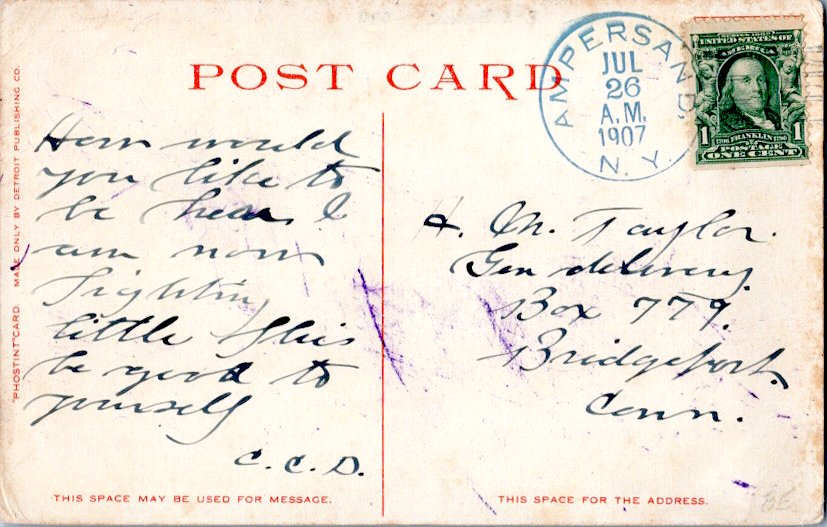 POST CARD
AMPERSAND,
JUL
26
A.M.
1907
N. Y.
SERIES 1902
UNITED STATES OF
AMERICA
1 1
1706 FRANKLIN 1790
POSTAGE
ONE CENT
"PHOSTINT" CARD. MADE ONLY BY DETROIT PUBLISHING CO.
How would
you like to
be hear I
am now
fighting
little flies
be good to
yourself
C. C. D.
H. M. Taylor.
Gen delivery.
Box 779.
Bridgeport.
Conn.
THIS SPACE MAY BE USED FOR MESSAGE.
THIS SPACE FOR THE ADDRESS.